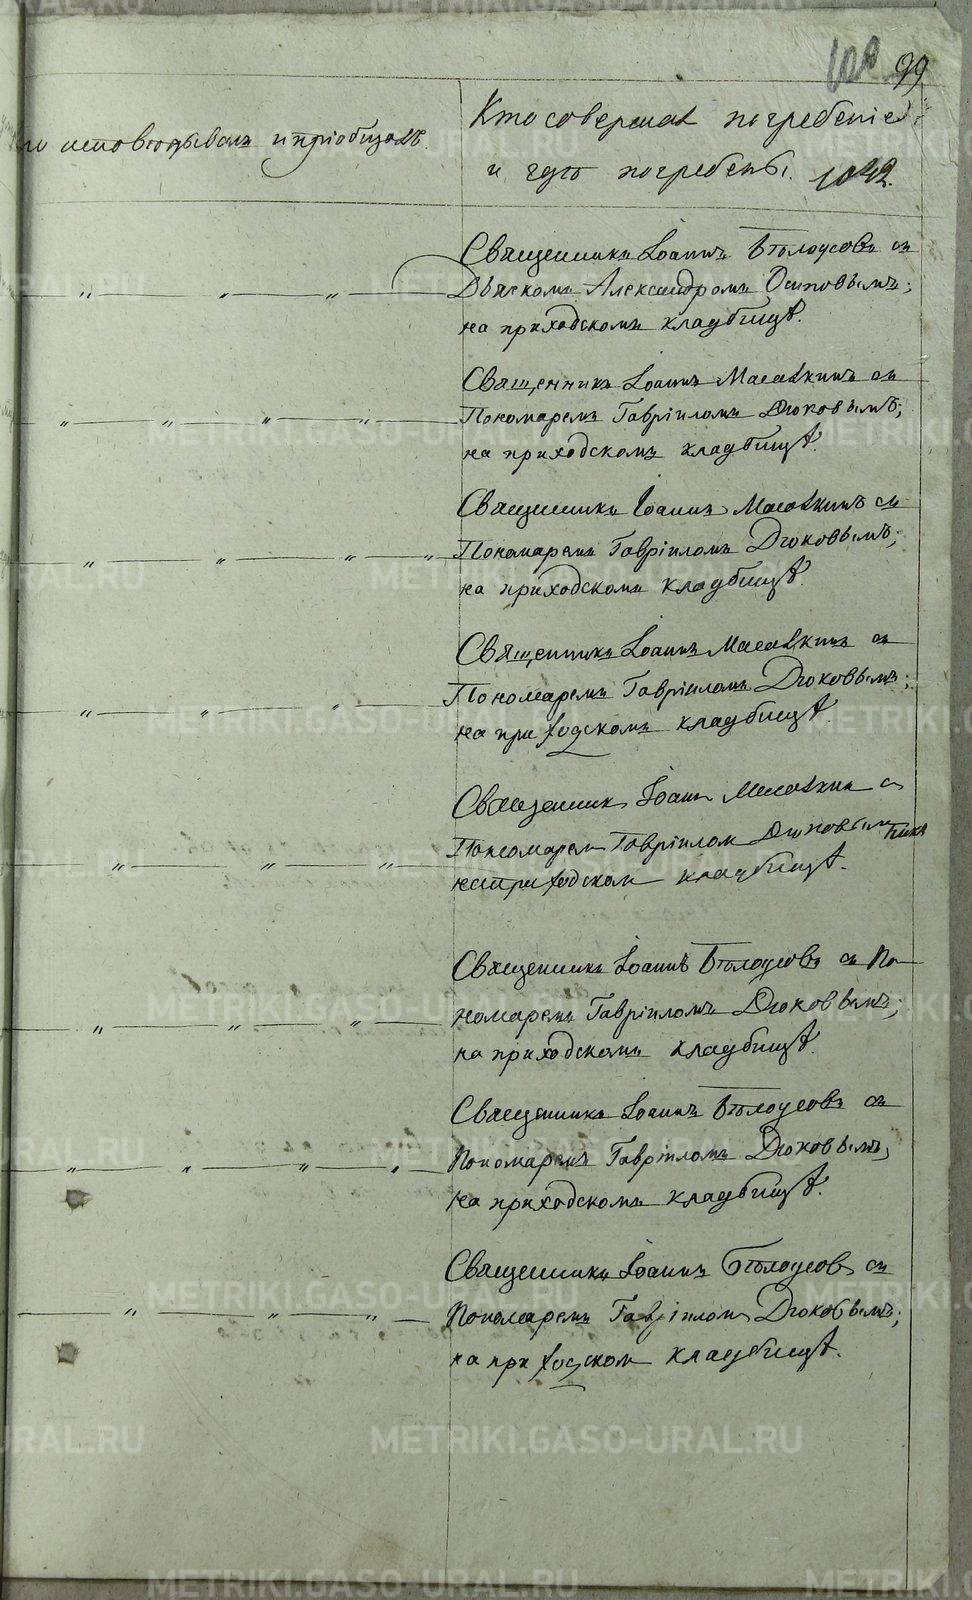 99
исповѣдывалъ и пріобщалъ.
Кто совершалъ погребеніе
и гдѣ погребены. 1042.
Священникъ Іоаннъ Бѣлоусовъ съ
Дьякономъ Александромъ Осиповымъ;
на приходскомъ кладбищѣ.
Священникъ Іоаннъ Масалкинъ съ
Пономаремъ Гавріиломъ Дюковымъ;
на приходскомъ кладбищѣ.
Священникъ Іоаннъ Масалкинъ съ
Пономаремъ Гавріиломъ Дюковымъ;
на приходскомъ кладбищѣ.
Священникъ Іоаннъ Масалкинъ съ
Пономаремъ Гавріиломъ Дюковымъ;
на приходскомъ кладбищѣ.
Священник Іоанн Масалкин с
Пономарем Гавріилом Дюковым
на приходском кладбищѣ.
Священникъ Іоаннъ Бѣлоусовъ съ По-
номаремъ Гавріиломъ Дюковымъ;
на приходскомъ кладбищѣ.
Священникъ Іоаннъ Бѣлоусовъ съ
Пономаремъ Гавріиломъ Дюковымъ;
на приходскомъ кладбищѣ.
Священникъ Іоаннъ Бѣлоусовъ съ
Пономаремъ Гавріиломъ Дюковымъ;
на приходском кладбищѣ.
METRIKI.GASO-URAL.RU